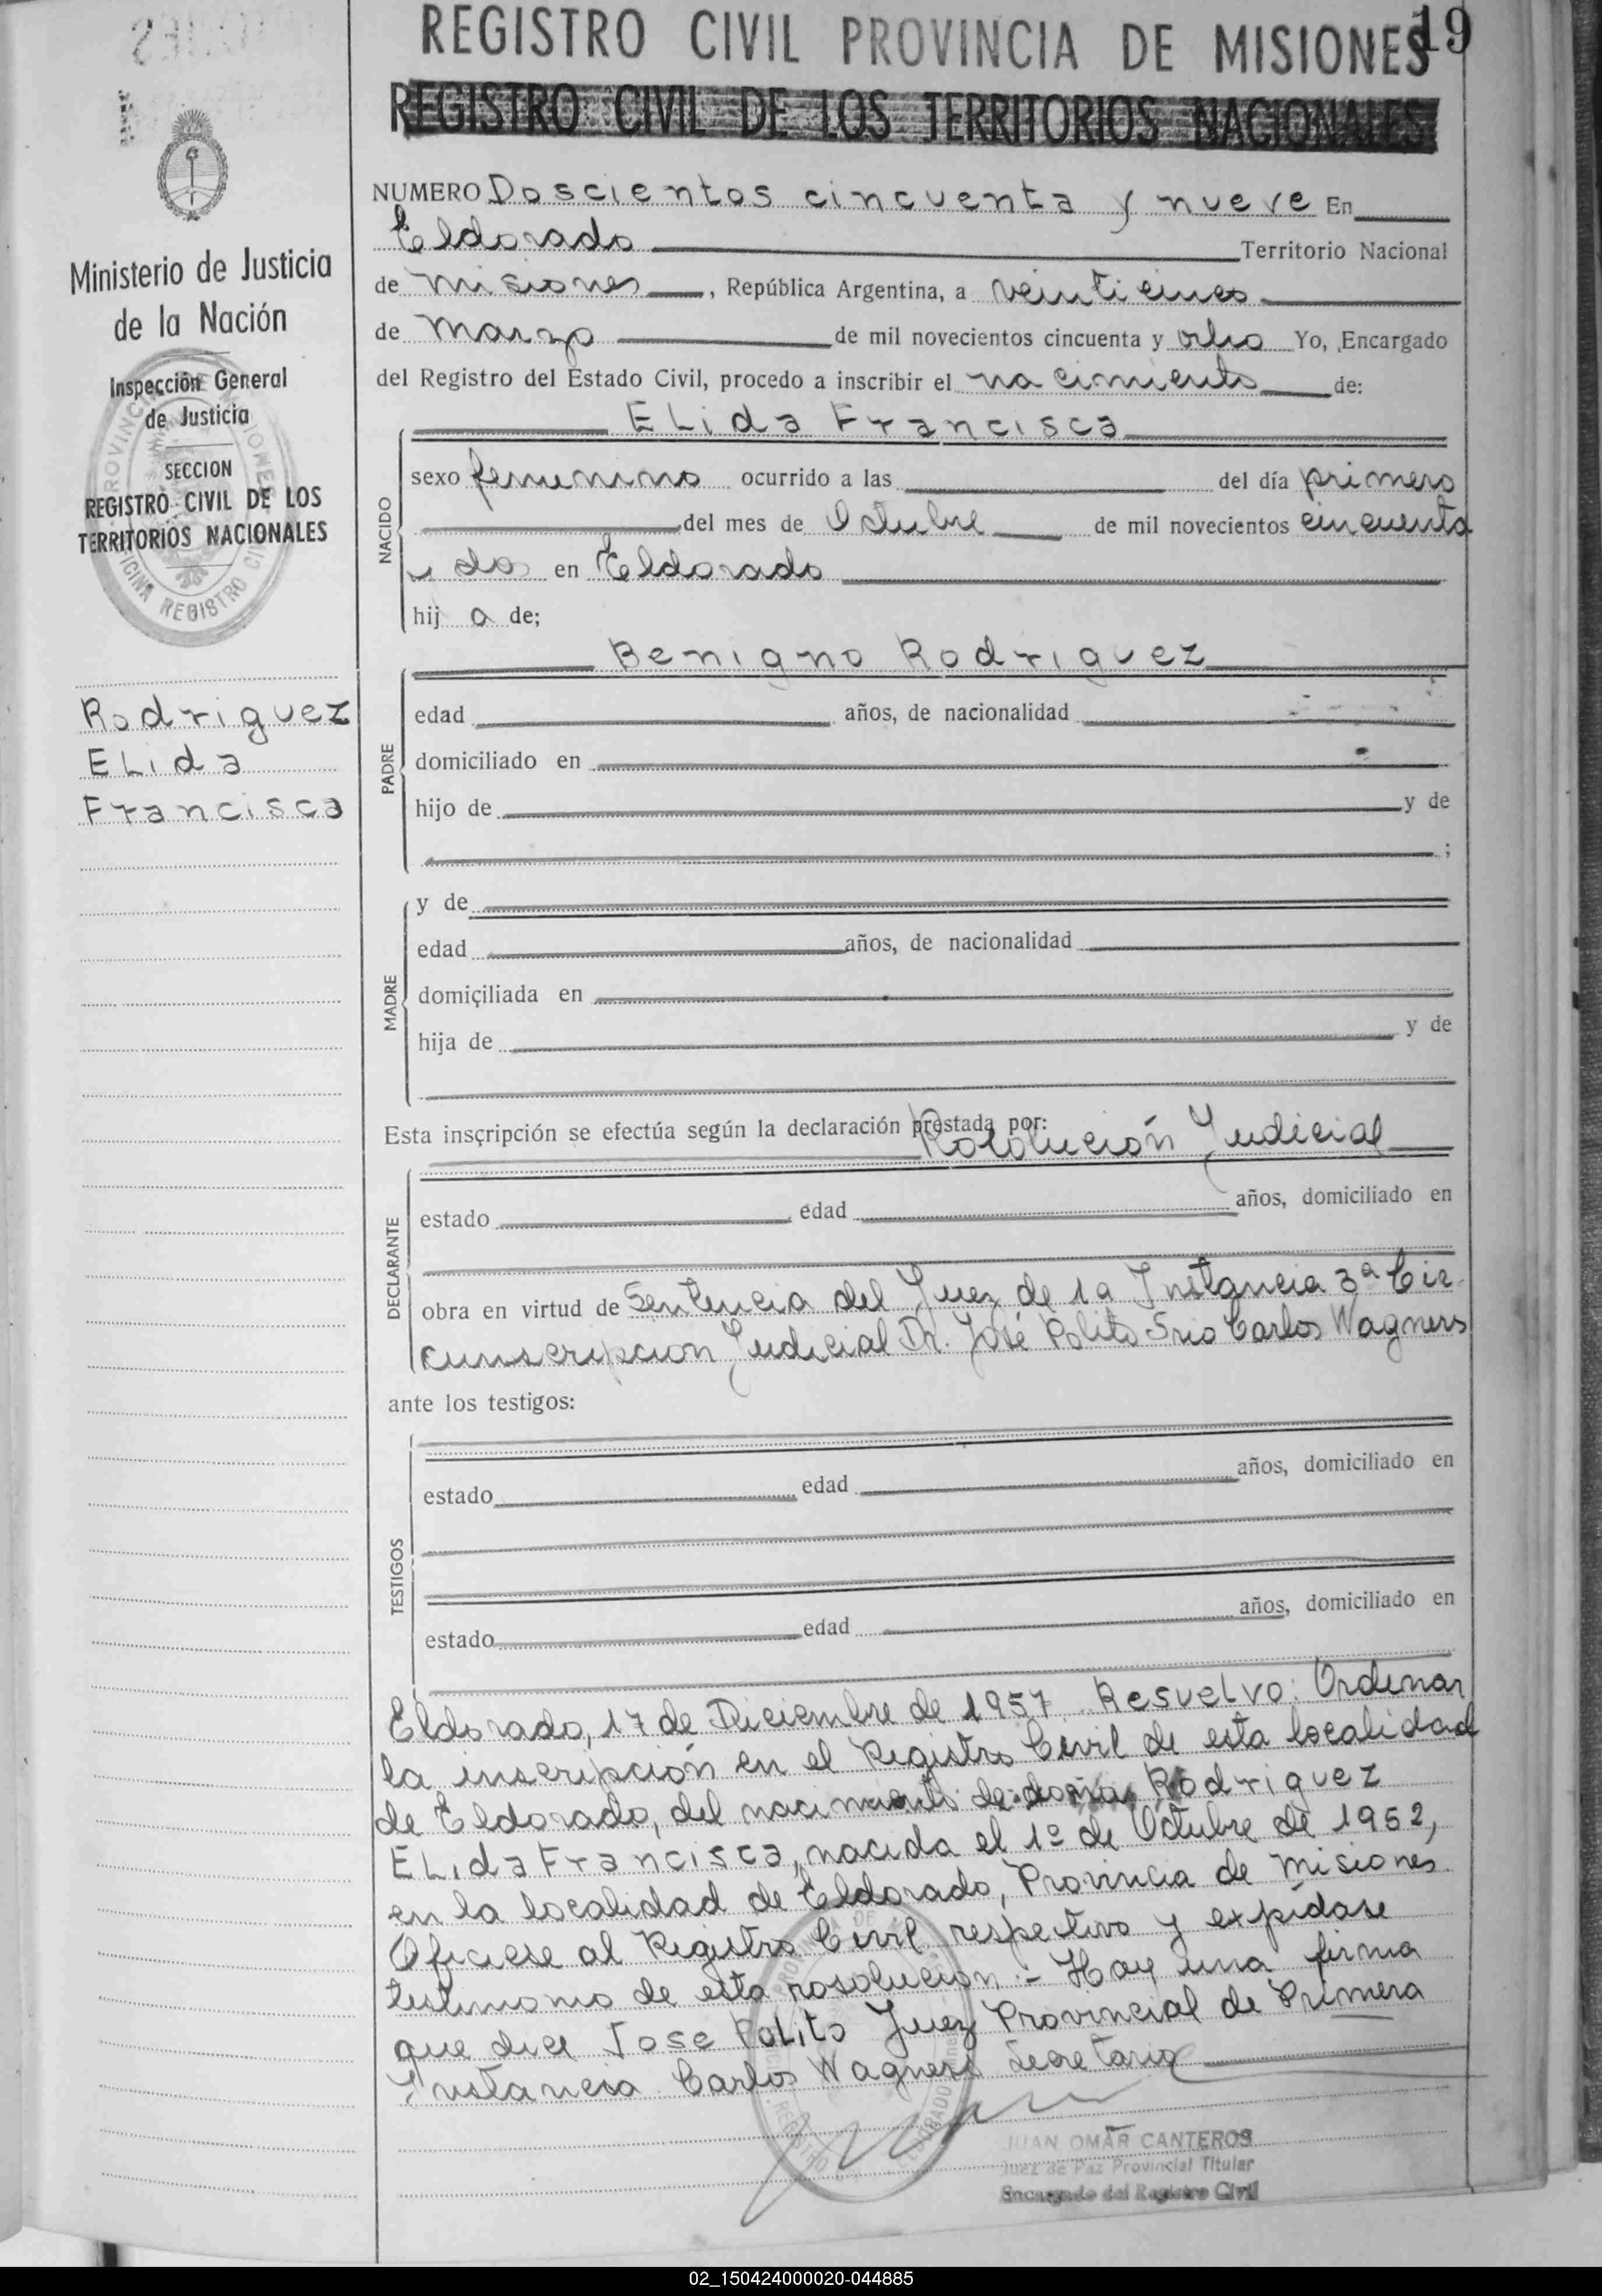 19
REGISTRO CIVIL PROVINCIA DE MISIONES
REGISTRO CIVIL DE LOS TERRITORIOS NACIONALES
Ministerio de Justicia
de la Nación
Inspección General
de Justicia
SECCION
REGISTRO CIVIL DE LOS
TERRITORIOS NACIONALES
Rodriguez
ELida
Francisca
NUMERO Doscientos cincuenta y nueve En
Eldorado Territorio Nacional
de Misiones, República Argentina, a veinticinco
de Marzo de mil novecientos cincuenta y ocho Yo, Encargado
del Registro del Estado Civil, procedo a inscribir el nacimiento de:
ELida Francisca
NACIDO
sexo femenino ocurrido a las del día primero
del mes de Octubre de mil novecientos cincuenta
y dos en Eldorado
hij a de;
Benigno Rodriguez
PADRE
edad años, de nacionalidad
domiciliado en
hijo de y de
;
MADRE
y de
edad años, de nacionalidad
domiciliada en
hija de y de
Esta inscripción se efectúa según la declaración prestada por: Rosolución Judicial
DECLARANTE
estado edad años, domiciliado en
obra en virtud de Sentencia del Juez de 1a Instancia 3ª Cir
cunscripcion Judicial Dr. José Polito Srio Carlos Wagners
ante los testigos:
TESTIGOS
estado edad años, domiciliado en
estado edad años, domiciliado en
Eldorado, 17 de Diciembre de 1957. Resuelvo: Ordenar
la inscripción en el Registro Civil de esta localidad
de Eldorado, del nacimiento de: doña Rodriguez
ELida Francisca, nacida el 1º de Octubre de 1952,
en la localidad de Eldorado, Provincia de Misiones
Oficiese al Registro Civil respectivo y expídase
testimonio de esta rosolucion.- Hay una firma
que dice Jose Polito Juez Provincial de Primera
Instancia Carlos Wagners Secretario
JUAN OMAR CANTEROS
Juez de Paz Provincial Titular
Encargado del Registro Civil
02_150424000020-044885